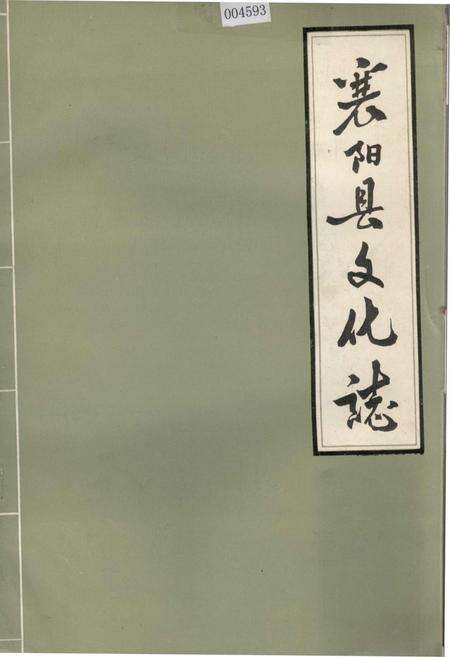 004593
襄阳县文化誌